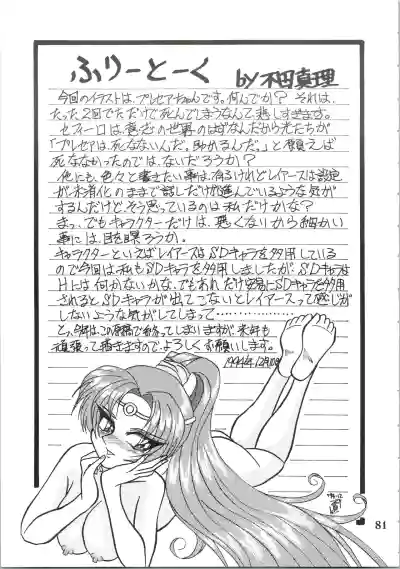 ふりーとーく by 本田真理
今回のイラストは、プレセアちゃんです。何んでか？それは、
たった2回でただで死んでしまうなんて悲しすぎます。
セフィーロは、意志の世界のはずなんだから光たちが
「プレセアは、死なないんだ。助かるんだ。」と願えば
死ななかったのでは、ないだろうか？
他にも、色々と書きたい事は、有るけれどレイアースは設定
が未消化のままで話しだけが進んでいるような気が
するんだけど、そう思っているのは私だけかな？
まっ、でもキャラクターだけは、悪くないから細かい
事には、目を瞑ろうか。
キャラクターといえばレイアースはSDキャラを多用している
ので今回は私もSDキャラを多用しましたが、SDキャラは
Hには向かないかな、でもあれだけ容易にSDキャラを多用
されるとSDキャラが出てこないとレイアースって感じが
しないような気がしてしまって……………
と、今年は、この原稿で終ってしまいますが、来年も
頑張って描きますので、よろしくお願いします。
1994年12月
'94-12
81